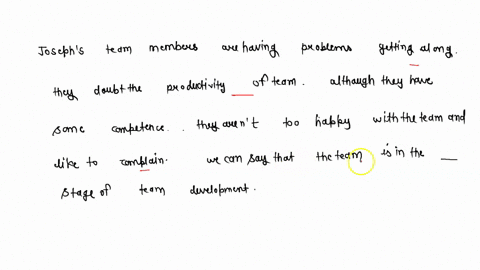 Joseph's team members are having problems getting along.
they doubt the productivity __ of team. although they have
some competence.. they aren't too happy with the team and
like to complain. we can say that the team is in the __
stage of team development.